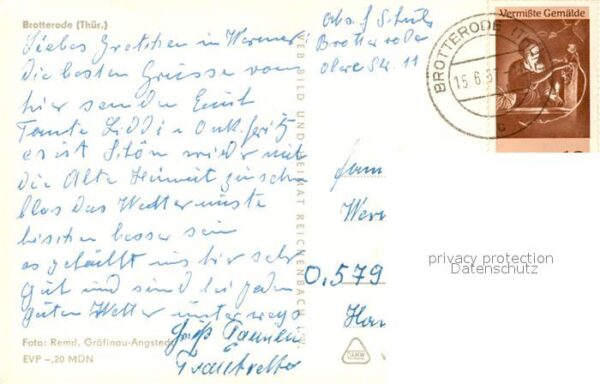 Brotterode (Thür.)
Liebes Gretchen in Werner
Die besten Grüsse von
hier senden Euch
Tante Liddi u Onk. Fritz
es ist Schön wieder mal
die Alte Heimat zu sehn
blos Das Wetter müste
bischen besser sein
es gefällt uns hir sehr
gut und sind bei jeden
guten Wetter unterwegs
Gruß
Foto: Remd, Gräfinau-Angstedt
EVP –,20 MDN
VEB BILD UND HEIMAT REICHENBACH i. V.
Abs. F Schulz
Brotterode
Obere Str. 11
Vermißte Gemälde
BROTTERODE
15.6.
c
Fam
Wer
0,579
Han
privacy protection
Datenschutz